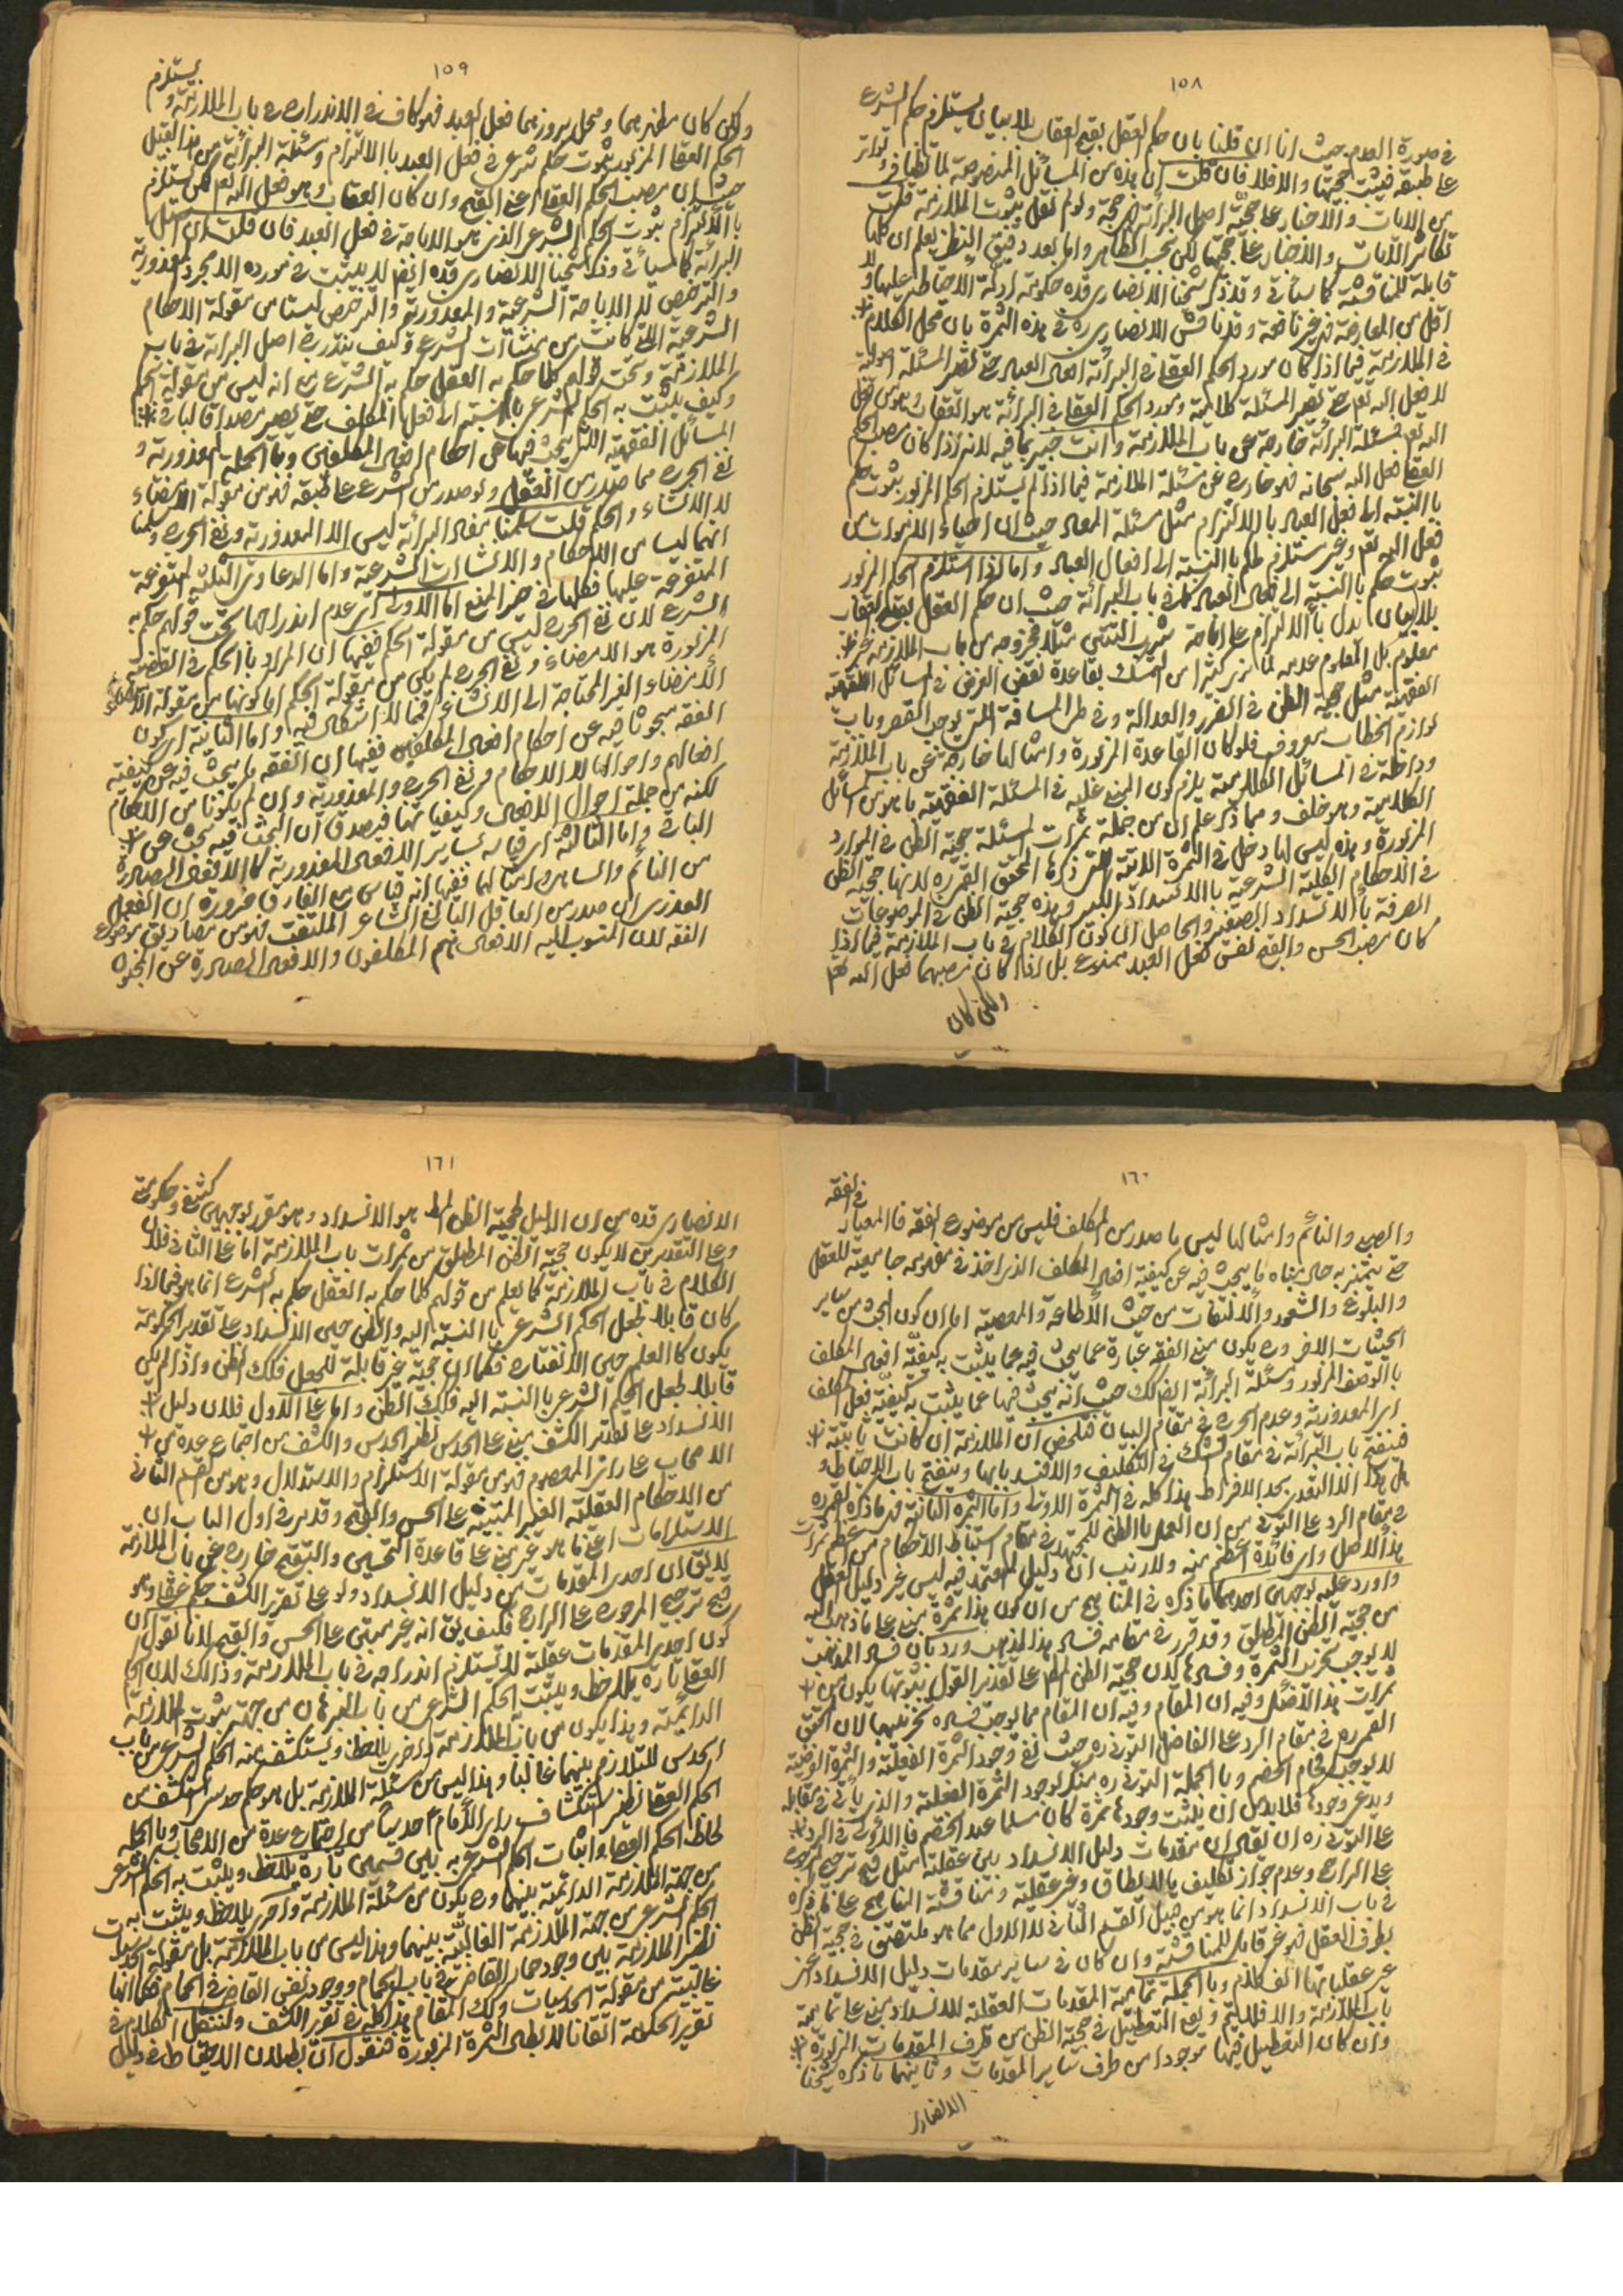 ١٥٨
في صورة العدم حيث انا ان قلنا بان حكم العقل بقبح العقاب بلا بيان يستلزم حكم الشرع
على طبقه فيثبت حجيتها والا فلا فان قلت ان هذه من المسائل المنصوصة لما تظافر و تواتر
من الايات والاخبار على حجية اصل البرائة فهي حجة ولو لم نقل بثبوت الملازمة قلت
تكاثر الايات والاخبار على حجيتها لكن بحسب الظاهر واما بعد دقيق النظر يعلم ان كلها
قابلة للمناقشة كما سيأتي وقد ذكر شيخنا الانصاري قده حكومة ادلة الاحتياط عليها و لا
اقل من المعارضة فهي غير نافعة وقد ناقش الانصاري ره في هذه الثمرة بان محل الكلام
في الملازمة فيما اذا كان مورد الحكم العقلي في البرائة افعال العباد حتى تصير المسئلة اصولية
لا فعل الله تعم حتى تصير المسئلة كلامية ومورد الحكم العقلي في البرائة هو العقاب وهو من فعل
الله تعم فمسئلة البرائة خارجة عن باب الملازمة وانت خبير بما فيه لانه اذا كان مصب الحكم
العقلي فعل الله سبحانه فهو خارج عن مسئلة الملازمة فيما اذا لم يستلزم الحكم المزبور بثبوت حكم
بالنسبة الى فعل العباد بالالتزام مثل مسئلة المعاد حيث ان احياء الاموات من
فعل الله تعم وغير مستلزم لحكم بالنسبة الى افعال العباد واما اذا استلزم الحكم المزبور
ثبوت حكم بالنسبة الى فعل العباد كما في باب البرائة حيث ان حكم العقل بقبح العقاب
بلا بيان يدل بالالتزام على اباحة شرب التتن مثلا فخروجه من باب الملازمة غير
معلوم بل المعلوم عدمه لما نرى كثيرا من التمسك بقاعدة نقض الغرض في المسائل الفقهية
الفقهية مثل حجية الظن في الضرر والعدالة وفي طي المسافة التي توجب القصر وباب
لوازم الخطاب معروف فلو كان القاعدة المزبورة وامثالها خارجة عن باب الملازمة
وداخلة في المسائل الكلامية يلزم كون المبني عليه في المسئلة الفقهية ما هو من المسائل
الكلامية وهو خلف ومما ذكر علم ان من جملة ثمرات المسئلة حجية الظن في الموارد
المزبورة وهذه ليس لها دخل في الثمرة الاتية التي ذكرها المحقق القمي ره لانها حجية الظن
في الاحكام الكلية الشرعية بالانسداد الكبير وهذه حجية الظن في الموضوعات
الصرفة بالانسداد الصغير والحاصل ان كون الكلام في باب الملازمة فيما اذا
كان مصب الحسن والقبح نفس فعل العبد ممنوع بل اذا كان مصبهما فعل الله تعم
ولكن كان
١٥٩
ولكن كان مظهرهما ومحل بروزهما فعل العبد فهو كاف في الاندراج في باب الملازمة و يستلزم
الحكم العقلي المزبور ثبوت حكم شرعي في فعل العبد بالالتزام ومسئلة البرائة من هذا القبيل
حيث ان مصب الحكم العقلي اعني القبح وان كان العقاب وهو فعل الله تعم لكن يستلزم
بالالتزام ثبوت الحكم الشرعي الذي هو الاباحة في فعل العبد فان قلت ان اصل
البرائة كما سيأتي وذكر شيخنا الانصاري قده ايضا لا يثبت في مورده الا مجرد المعذورية
والترخيص لا الاباحة الشرعية والمعذورية والترخيص ليستا من مقولة الاحكام
الشرعية التي كانت من منشئات الشرع فكيف يندرج اصل البرائة في باب
الملازمة وتحت قولهم كلما حكم به العقل حكم به الشرع مع انه ليس من مقولة الحكم
وكيف يثبت به الحكم الشرعي بالنسبة الى فعل المكلف حتى يصير مصداقا لباب
المسائل الفقهية التي يبحث فيها عن احكام افعال المكلفين وبالجملة المعذورية و
نفي الحرج مما صدر من العقل ولو صدر من الشرع على طبقه فهو من مقولة الامضاء
لا الانشاء والحكم قلت سلمنا مفاد البرائة ليس الا المعذورية ونفي الحرج وسلمنا
انهما ليسا من الاحكام والانشاءات الشرعية واما الدعاوي الثلثة المتفرعة
المتفرعة عليها فكلها في حيز المنع اما الاولى اي عدم اندراجها تحت قولهم حكم به
الشرع لان نفي الحرج ليس من مقولة الحكم ففيها ان المراد بالحكم في القضية
المزبورة هو الامضاء و نفي الحرج لم يكن من مقولة الحكم اما كونها من مقولة الامضاء
الامضاء الغير المحتاجة الى الانشاء فمما لا اشكال فيه واما الثانية اي كون
الفقه مبحوثا فيه عن احكام افعال المكلفين ففيها ان الفقه ما يبحث فيه عن كيفية
افعالهم واحوالها لا الاحكام فنفي الحرج والمعذورية وان لم يكونا من الاحكام
لكنه من جملة احوال الافعال وكيفياتها فيصدق ان البحث فيه بحث عن
الباقي واما الثالثة اي قياسه بساير الافعال المعذورية كالافعال الصادرة
من النائم والساهي وامثالهما ففيها انه قياس مع الفارق ضرورة ان الفعل
العذري ان صدر من العاقل البالغ الشاعر الملتفت فهو من مصاديق موضوع
الفقه لان المنسوب اليه الافعال هم المكلفون والافعال الصادرة عن المجنون
١٦٠
والصبي والنائم وامثالها ليس ما صدر من المكلف فليس من موضوع الفقه فالمعيار في الفقه
حتى يتميز به حاله بناء ما يبحث فيه عن كيفية افعال المكلف الذي اخذ في مفهومه جامعية للعقل
والبلوغ والشعور والالتفات من حيث الاطاعة والمعصية اما ان كون البحث من ساير
الحيثيات الاخر وح يكون مبنى الفقه عبارة عما يبحث فيه عما يثبت به كيفية افعال المكلف
بالوصف المزبور ومسئلة البرائة ايضا كك حيث انه يبحث فيها عما يثبت به كيفية فعل المكلف
اي المعذورية وعدم الحرج في مقام البيان فتلخص ان الملازمة ان كانت ثابتة
فينفتح باب البرائة في مقام الشك في التكليف والا فينسد بابها وينفتح باب الاحتياط و
هل هذا الا التعدي بحد الافراط هذا كله في الثمرة الاولى واما الثمرة الثانية فهي ما ذكره القمي ره
في مقام الرد على التوني من ان العمل بالظن للمجتهد في مقام استنباط الاحكام من اعظم ثمرات
هذا الاصل واي فائدة اعظم منه ولا ريب ان دليل المعتمد فيه ليس غير دليل العقل
واورد عليه بوجهين احدهما ما ذكره في المناهج من ان كون هذا ثمرة مبني على ما ذهب اليه
من حجية الظن المطلق وقد قرر في مقامه فساد هذا المذهب ورد بان فساد المذهب
لا يوجب تخريب الثمرة وفسادها لان حجية الظن المط على تقدير القول بثبوتها يكون من
ثمرات هذا الاصل وفيه ان المقام وفيه ان المقام مما يوجب فساده تخريبها لان المحقق
القمي ره في مقام الرد على الفاضل التوني ره حيث نفي وجود الثمرة الفعلية والثمرة الفرضية
لا يوجب افحام الخصم وبالجملة التوني ره ينكر لوجود الثمرة الفعلية والذي يأتي في مقابله
ويدعي وجودها فلابد ان يثبت وجودها ثمرة كان مسلما عند الخصم فالاولى في الرد
على التوني ره ان يقال ان مقدمات دليل الانسداد بين عقلية مثل قبح ترجيح المرجوح
على الراجح وعدم جواز تكليف ما لا يطاق وغير عقلية ومناقشة المناهج على ما ذكره
في باب الانسداد انما هو من قبيل القسم الثاني لا الاول مما هو ملتصق في حجية الظن
بطرف العقل فهو غير قابل للمناقشة وان كان في ساير مقدمات دليل الانسداد غير
غير عقلياتها الف كلام وبالجملة تمامية المقدمات العقلية للانسداد مبني على تمامية
باب الملازمة والا فلا يتم ويقع التعطيل في حجية الظن من طرف المقدمات المزبورة
وان كان التعطيل فيها موجودا من طرف ساير المقدمات وثانيهما ما ذكره شيخنا
الانصاري
١٦١
الانصاري قده من ان الدليل لحجية الظن المط هو الانسداد وهو مقرر بوجهين كشف و حكومة
وعلى التقديرين لا يكون حجية الظن المطلق من ثمرات باب الملازمة اما على الثاني فلان
الكلام في باب الملازمة كما يعلم من قولهم كلما حكم به العقل حكم به الشرع انما هو فيما اذا
كان قابلا لجعل الحكم الشرعي بالنسبة اليه والظن حين الانسداد على تقدير الحكومة
يكون كالعلم حين الانفتاح فكما ان حجية غير قابلة للجعل فكك الظن واذا لم يكن
قابلا لجعل الحكم الشرعي بالنسبة اليه فكك الظن واما على الاول فلان دليل
الانسداد على تقدير الكشف مبني على الحدس نظير الحدس والكشف من اجماع عدة من
الاصحاب على راي المعصوم فهو من مقولة الاستلزام والاستدلال وهو من القسم الثاني
من الاحكام العقلية الغير المبتنية على الحسن والقبح وقد مر في اول الباب ان
الاستلزامات اعني ما هو غير مبني على قاعدة التحسين والتقبيح خارج عن باب الملازمة
لا يق ان احدى المقدمات من دليل الانسداد ولو على تقرير الكشف حكم عقلي وهو
قبح ترجيح المرجوح على الراجح فكيف يق انه غير مبتني على الحسن والقبح لانا نقول ان
كون احدى المقدمات عقلية لا يستلزم اندراجه في باب الملازمة وذلك لان الحكم
العقلي تارة يلاحظ ويثبت الحكم الشرعي من باب البرهان من جهة ثبوت الملازمة
الدائمية وهذا يكون من باب الملازمة واخرى يلاحظ ويستكشف منه الحكم الشرعي من باب
الحدس للتلازم بينهما غالبا وهذا ليس من مسئلة الملازمة بل هو حكم حدسي استكشف من
الحكم العقلي نظير استكشاف راي الامام حدسيا من اجماع عدة من الاصحاب وبالجملة
لحاظ الحكم العقلي واثبات الحكم الشرعي به بين قسمين تارة يلاحظ ويثبت به الحكم الشرعي
من جهة الملازمة الدائمية بينهما وح يكون من مسئلة الملازمة واخرى يلاحظ ويثبت به
الحكم الشرعي من جهة الملازمة الغالبية بينهما وهذا ليس من باب الملازمة بل مقولة الحدسيات
نظير الملازمة بين وجود حمار القاضي في باب الحمام ووجود نفس القاضي في الحمام فكما انها
غالبية من مقولة الحدسيات وكك المقام هذا كله في تقرير الكشف ولننتقل الكلام في
تقرير الحكومة اتقانا لابطال الثمرة المزبورة فنقول ان بطلان الاحتياط في دليل